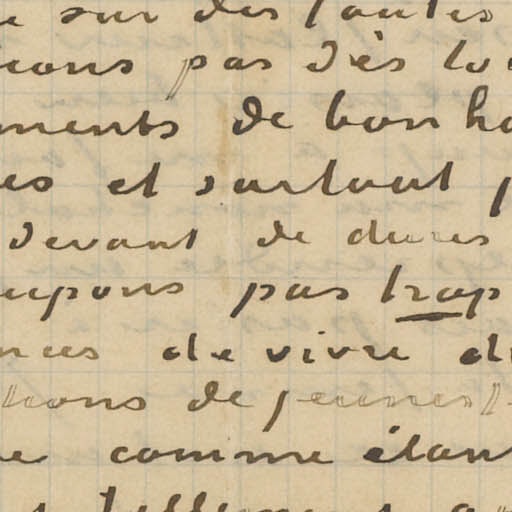 sur des fautes
pas dès
ments de bonh
es et surtout p
devant de dures
upons pas trop
nces de vivre d
tions de jeunes
e comme étant